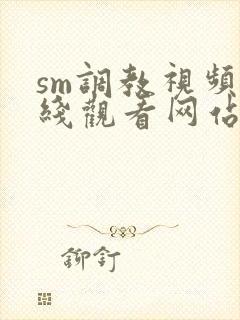 sm調教視頻
綫觀看网佔
鉚釘